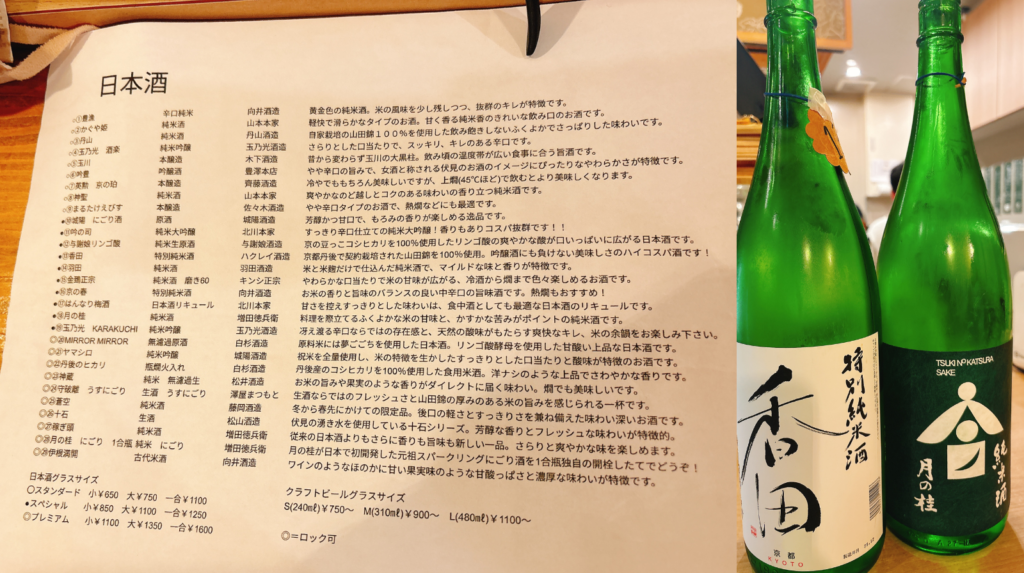 日本酒
○①豊漁 辛口純米 向井酒造 黄金色の純米酒。米の風味を少し残しつつ、抜群のキレが特徴です。
○②かぐや姫 純米酒 山本本家 軽快で滑らかなタイプのお酒。甘く香る純米香のきれいな飲み口のお酒です。
○③丹山 純米酒 丹山酒造 自家栽培の山田錦１００％を使用した飲み飽きしないふくよかでさっぱりした味わいです。
○④玉乃光 酒楽 純米吟醸 玉乃光酒造 さらりとした口当たりで、スッキリ、キレのある辛口です。
○⑤玉川 本醸造 木下酒造 昔から変わらず玉川の大黒柱。飲み頃の温度帯が広い食事に合う旨酒です。
○⑥吟豊 吟醸酒 豊澤本店 やや辛口の旨みで、女酒と称される伏見のお酒のイメージにぴったりなやわらかさが特徴です。
○⑦英勲 京の珀 本醸造 齊藤酒造 冷やでももちろん美味しいですが、上燗(45℃ほど)で飲むとより美味しくなります。
○⑧神聖 純米酒 山本本家 爽やかなのど越しとコクのある味わいの香り立つ純米酒です。
○⑨まるたけえびす 本醸造 佐々木酒造 やや辛口タイプのお酒で、熱燗などにも最適です。
●⑩城陽 にごり酒 原酒 城陽酒造 芳醇かつ甘口で、もろみの香りが楽しめる逸品です。
●⑪吟の司 純米大吟醸 北川本家 すっきり辛口仕立ての純米大吟醸！香りもありコスパ抜群です！！
●⑫与謝娘リンゴ酸 純米生原酒 与謝娘酒造 京の豆っこコシヒカリを100％使用したリンゴ酸の爽やかな酸が口いっぱいに広がる日本酒です。
●⑬香田 特別純米酒 ハクレイ酒造 京都丹後で契約栽培された山田錦を100％使用。吟醸酒にも負けない美味しさのハイコスパ酒です！
●⑭羽田 純米酒 羽田酒造 米と米麹だけで仕込んだ純米酒で、マイルドな味と香りが特徴です。
●⑮金鵄正宗 純米酒 磨き60 キンシ正宗 やわらかな口当たりで米の甘味が広がる、冷酒から燗まで色々楽しめるお酒です。
●⑯京の春 特別純米酒 向井酒造 お米の香りと旨味のバランスの良い中辛口の旨味酒です。熱燗もおすすめ！
●⑰はんなり梅酒 日本酒リキュール 北川本家 甘さを控えすっきりとした味わいは、食中酒としても最適な日本酒のリキュールです。
●⑱月の桂 純米酒 増田徳兵衛 料理を際立てるふくよかな米の甘味と、かすかな苦みがポイントの純米酒です。
●⑲玉乃光 KARAKUCHI 純米吟醸 玉乃光酒造 冴え渡る辛口ならではの存在感と、天然の酸味がもたらす爽快なキレ、米の余韻をお楽しみ下さい。
●⑳MIRROR MIRROR 無濾過原酒 白杉酒造 原料米には夢ごこちを使用した日本酒。リンゴ酸酵母を使用した甘酸い上品な日本酒です。
◎㉑ヤマシロ 純米吟醸 城陽酒造 祝米を全量使用し、米の特徴を生かしたすっきりとした口当たりと酸味が特徴のお酒です。
◎㉒丹後のヒカリ 瓶燗火入れ 白杉酒造 丹後産のコシヒカリを100％使用した食用米酒。洋ナシのような上品でさわやかな香りです。
◎㉓神蔵 純米 無濾過生 松井酒造 お米の旨みや果実のような香りがダイレクトに届く味わい。燗でも美味しいです。
◎㉔守破離 うすにごり 生酒 うすにごり 澤屋まつもと 生酒ならではのフレッシュさと山田錦の厚みのある米の旨みを感じられる一杯です。
◎㉕蒼空 純米酒 藤岡酒造 冬から春先にかけての限定品。後口の軽さとすっきりさを兼ね備えた味わい深いお酒です。
◎㉖十石 生酒 松山酒造 伏見の湧き水を使用している十石シリーズ。芳醇な香りとフレッシュな味わいが特徴的。
◎㉗稼ぎ頭 純米酒 増田徳兵衛 従来の日本酒よりもさらに香りも旨味も新しい一品。さらりと爽やかな味を楽しめます。
◎㉘月の桂 にごり 1合瓶 純米 にごり 増田徳兵衛 月の桂が日本で初開発した元祖スパークリングにごり酒を1合瓶独自の開栓したてでどうぞ！
◎㉙伊根満開 古代米酒 向井酒造 ワインのようなほのかに甘い果実味のような甘酸っぱさと濃厚な味わいが特徴です。
日本酒グラスサイズ
○スタンダード 小￥650 大￥750 一合￥1100
●スペシャル 小￥850 大￥1100 一合￥1250
◎プレミアム 小￥1100 大￥1350 一合￥1600
クラフトビールグラスサイズ
S(240㎖)￥750～ M(310㎖)￥900～ L(480㎖)￥1100～
◎＝ロック可
特別純米酒
香田
京都
KYOTO
TSUKI NO KATSURA
SAKE
純米酒
月の桂